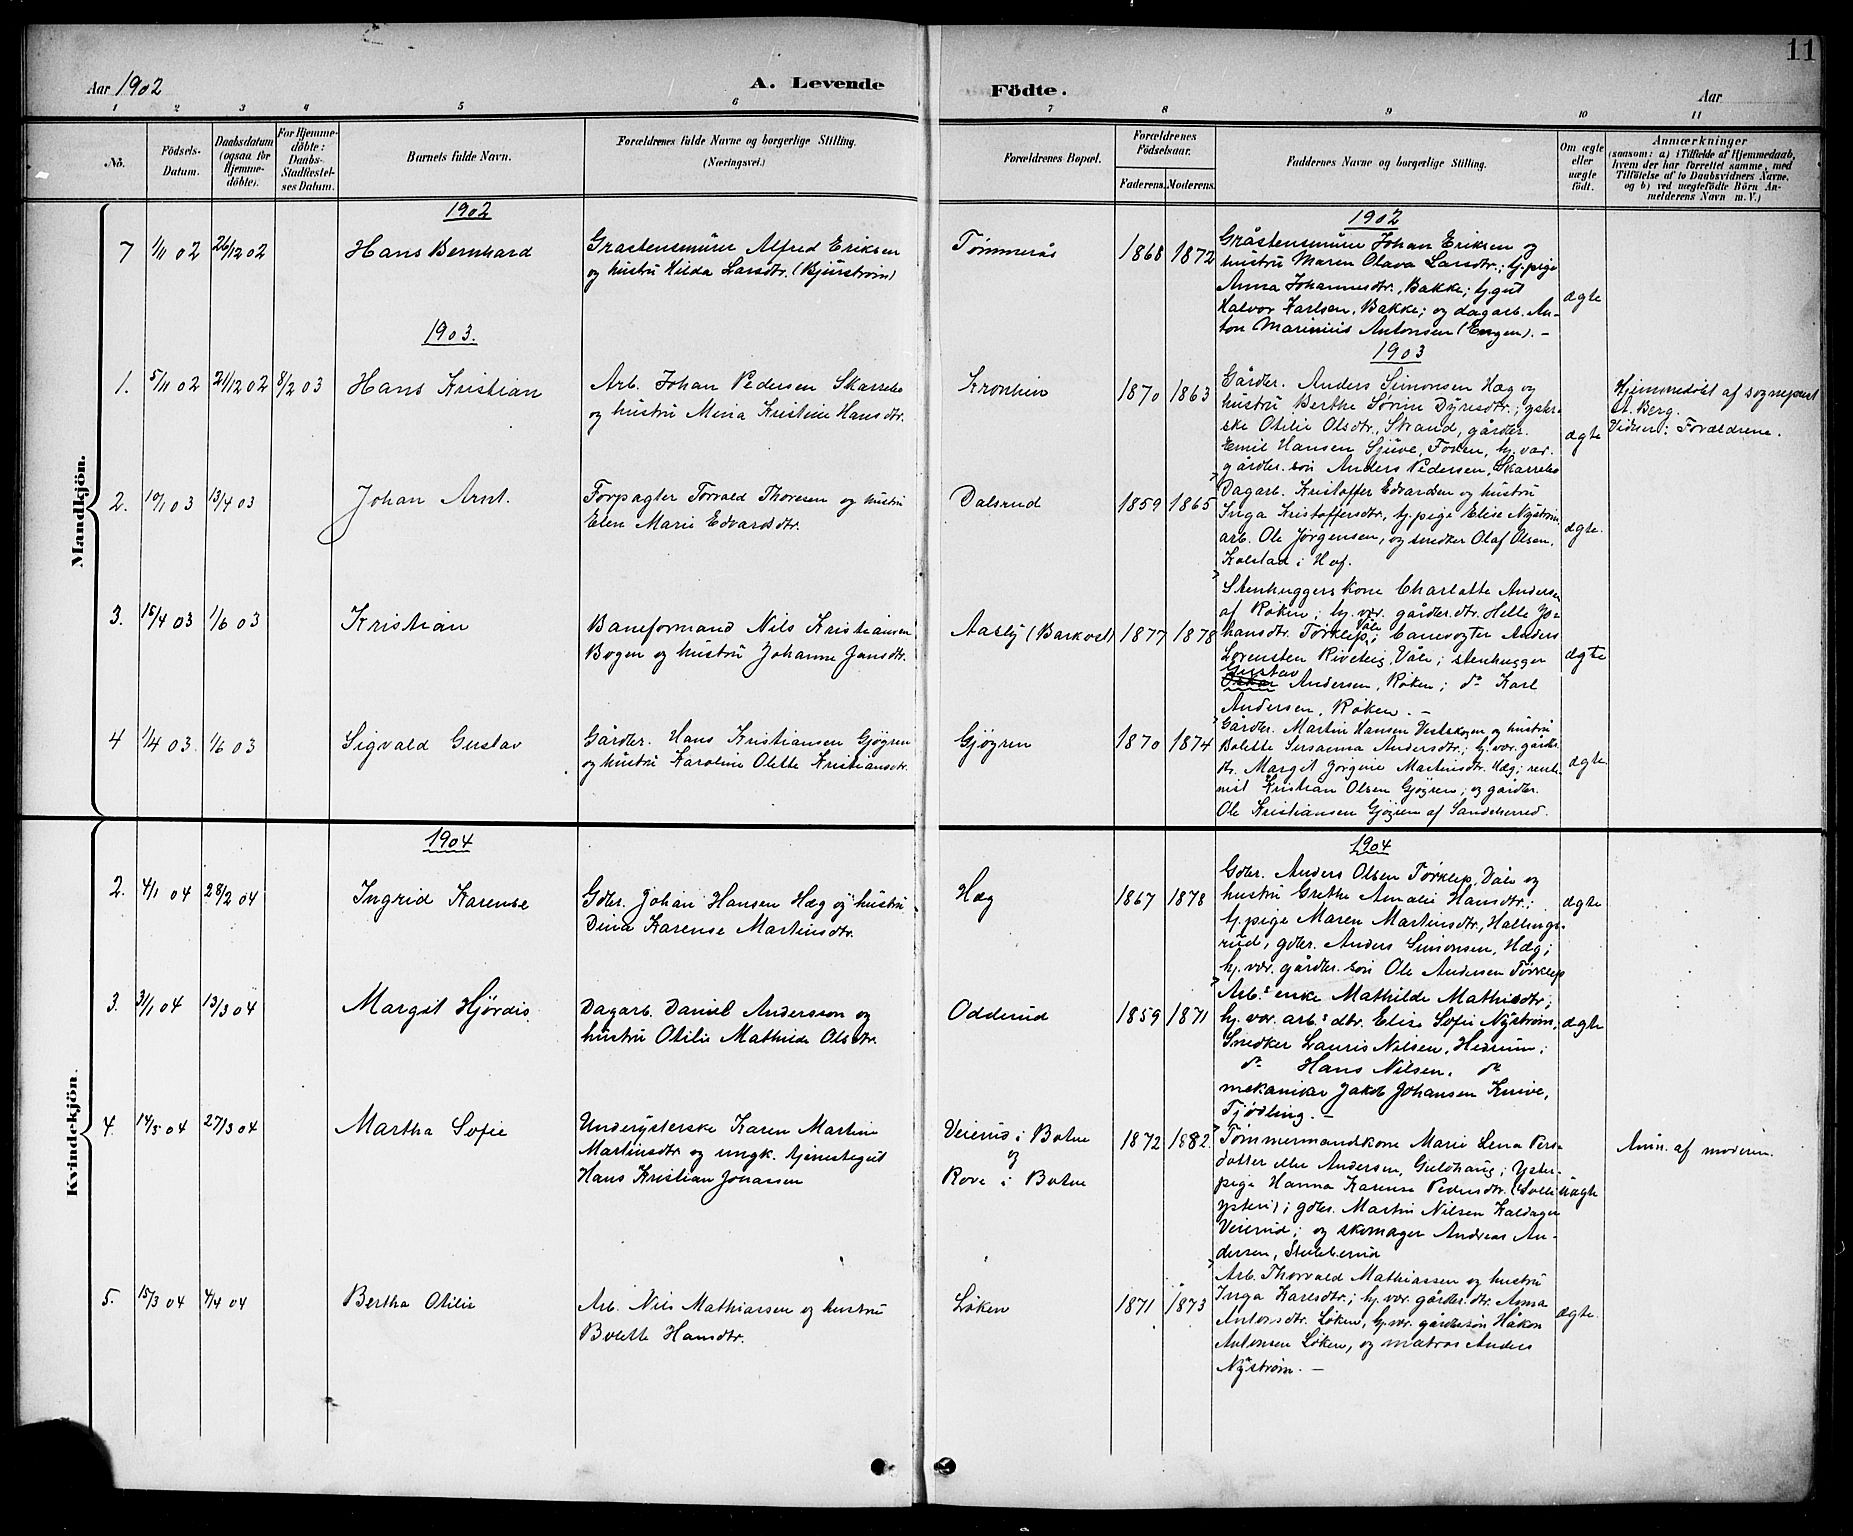 11
Aar 1902
A. Levende
Födte.
Aar
1 2 3 4 5 6 7 8 9 10 11
No.
Födsels-Datum.
Daabsdatum (ogsaa for Hjemme-döbte).
For Hjemme-döbte: Daabs-Stadfæstel-ses Datum.
Barnets fulde Navn.
Forældrenes fulde Navne og borgerlige Stilling.
(Næringsvei.)
Forældrenes Bopæl.
Forældrenes Födselsaar.
Faderens. Moderens.
Faddernes Navne og borgerlige Stilling.
Om ægte eller uægte født.
Anmærkninger
(saasom: a) i Tilfælde af Hjemmedaab,
hvem der har forrettet samme, med
Tilföielse af to Daabsvidners Navne,
og b) ved uægtefödte Börn An-
melderens Navn m. V.)
Mandkjön.
1902
1902
7 1/11 02 26/12 02
Hans Bernhard
Gråstensmurer Alfred Eriksen
og hustru Hilda Larsdtr. (Bjurstrøm)
Tømmerås
1868 1872
Gråstensmurer Johan Eriksen og
hustru Maren Olava Larsdtr.; tj.pige
Anna Johannesdtr., Bakke; tj.gut
Halvor Karlsen, Bakke; og dagarb. An-
ton Marinius Antonsen (Engen). –
ægte
1903.
1903
1. 5/11 02 21/12 02 8/2 03
Hans Kristian
Arb. Johan Pedersen Skarrebo
og hustru Mina Kristine Hansdtr.
Kronlien
1870 1863
Gårdbr. Anders Simonsen Hæg og
hustru Berthe Sørine Dyresdtr.; yster-
ske Otilie Olsdtr., Strand, gårdbr.
Emil Hansen Sjuve, Foden, hj.vær.
gårdbr. søn Anders Pedersen, Skarrebo
ægte
Hjemmedøbt af sogneprest
A. Berg.
Vidner: Forældrene.
2. 10/1 03 13/4 03
Johan Arnt.
Forpagter Torvald Thoresen og hustru
Elen Marie Edvardsdtr.
Dalsrud
1859 1865
Dagarb. Kristoffer Edvardsen og hustru
Inga Kristoffersdtr., tj.pige Elise Nystrøm,
arb. Ole Jørgensen, og snedker Olaf Olsen,
Kolstad i Hof.
ægte.
3. 15/4 03 1/6 03
Kristian
Baneformand Nils Kristiansen
Bogen og hustru Johanne Jensdtr.
Aasly (Barkost)
1877 1878
Stenhuggers kone Charlotte Andersen
af Røken; hj. vær. gårdbr.dtr. Helle Jo-
hansdtr. Tørklep, Våle; banevogter Anders
Lorentsen Riveteig, Våle; stenhugger
Gustav Andersen, Røken; do Karl
Andersen, Røken. –
ægte
4 1/4 03. 1/6 03
Sigvald Gustav
Gårdbr. Hans Kristiansen Gjøgren
og hustru Karoline Olette Kristiansdtr.
Gjøgren
1870 1874
Gårdbr. Martin Hansen Vestskogen og hustru
Bolette Susanna Andersdtr.; hj. vær. gårdbr.
dtr. Margit Jørgine Martinsdtr. Hæg; rent-
nist Kristian Olsen Gjøgren; og gårdbr.
Ole Kristiansen Gjøgren af Sandeherred.
ægte
Kvindekjön.
1904
1904
2. 4/1 04 28/2 04
Ingrid Karense
Gdbr. Johan Hansen Hæg og hustru
Dina Karense Martinsdtr.
Hæg
1867 1878
Gdbr. Anders Olsen Tørklep, Våle og
hustru Grethe Amalie Hansdtr.;
tj.pige Maren Martinsdtr., Hallings-
rud; gdbr. Anders Simonsen, Hæg;
hj. vær. gårdbr. søn Ole Andersen Tørklep
ægte
3. 31/1 04 13/3 04
Margit Hjørdis.
Dagarb. Daniel Andersson og
hustru Otilie Mathilde Olsdtr.
Odderud
1859 1871
Arb.s enke Mathilde Mathisdtr.;
hj. vær. arb.s dtr. Elise Sofie Nystrøm,
Snedker Lauris Nilsen, Hedrum;
do Hans Nilsen, do
mekaniker Jakob Johansen Knive,
Tjødling. –
ægte
4. 14/3 04 27/3 04
Martha Sofie
Underysterske Karen Martine
Martinsdtr og ungk. tjenestegut
Hans Kristian Johassen
Veierud i Botne
og
Rove i Botne
1872 1882.
Tømmermandkone Marie Lena Pers-
datter eller Andersen, Guldhaug; Yster-
pige Hanna Karense Pedersdtr. (Solli
ysteri); gdbr. Martin Nilsen Kaldager
Veierud; og skomager Andreas An-
dersen, Stubberud
uægte
Anm. af moderen.
5. 15/3 04 4/4 04
Bertha Otilie
Arb. Nils Mathiassen og hustru
Bolette Hansdtr.
Løken
1871 1873
Arb. Thorvald Mathiassen og hustru
Inga Karlsdtr.; hj. vær. gårdbr. dtr. Anna
Antonsdtr. Løken, hj.vær. gårdbrsøn Håkon
Antonsen Løken, og matros Anders
Nystrøm. –
ægte.